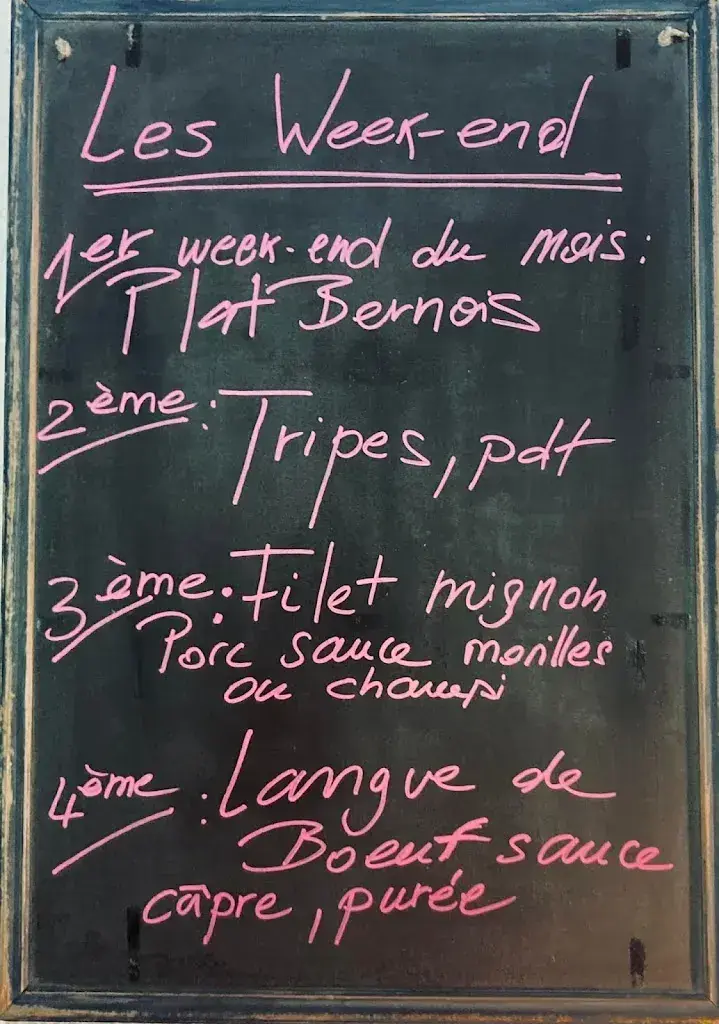 Les Week-end
1er week-end du mois:
Plat Bernois
2ème: Tripes, pdt
3ème: Filet mignon
Porc sauce morilles
ou champi
4ème: Langue de
Boeuf sauce
câpre, purée